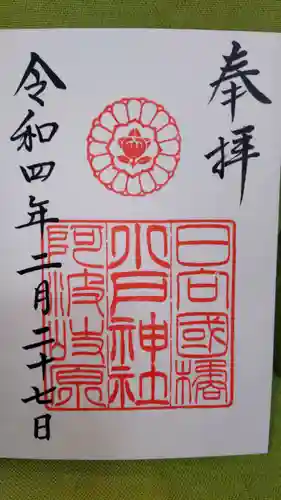 奉拝
日向國橘
小戸神社
阿波岐原
令和四年二月二十七日